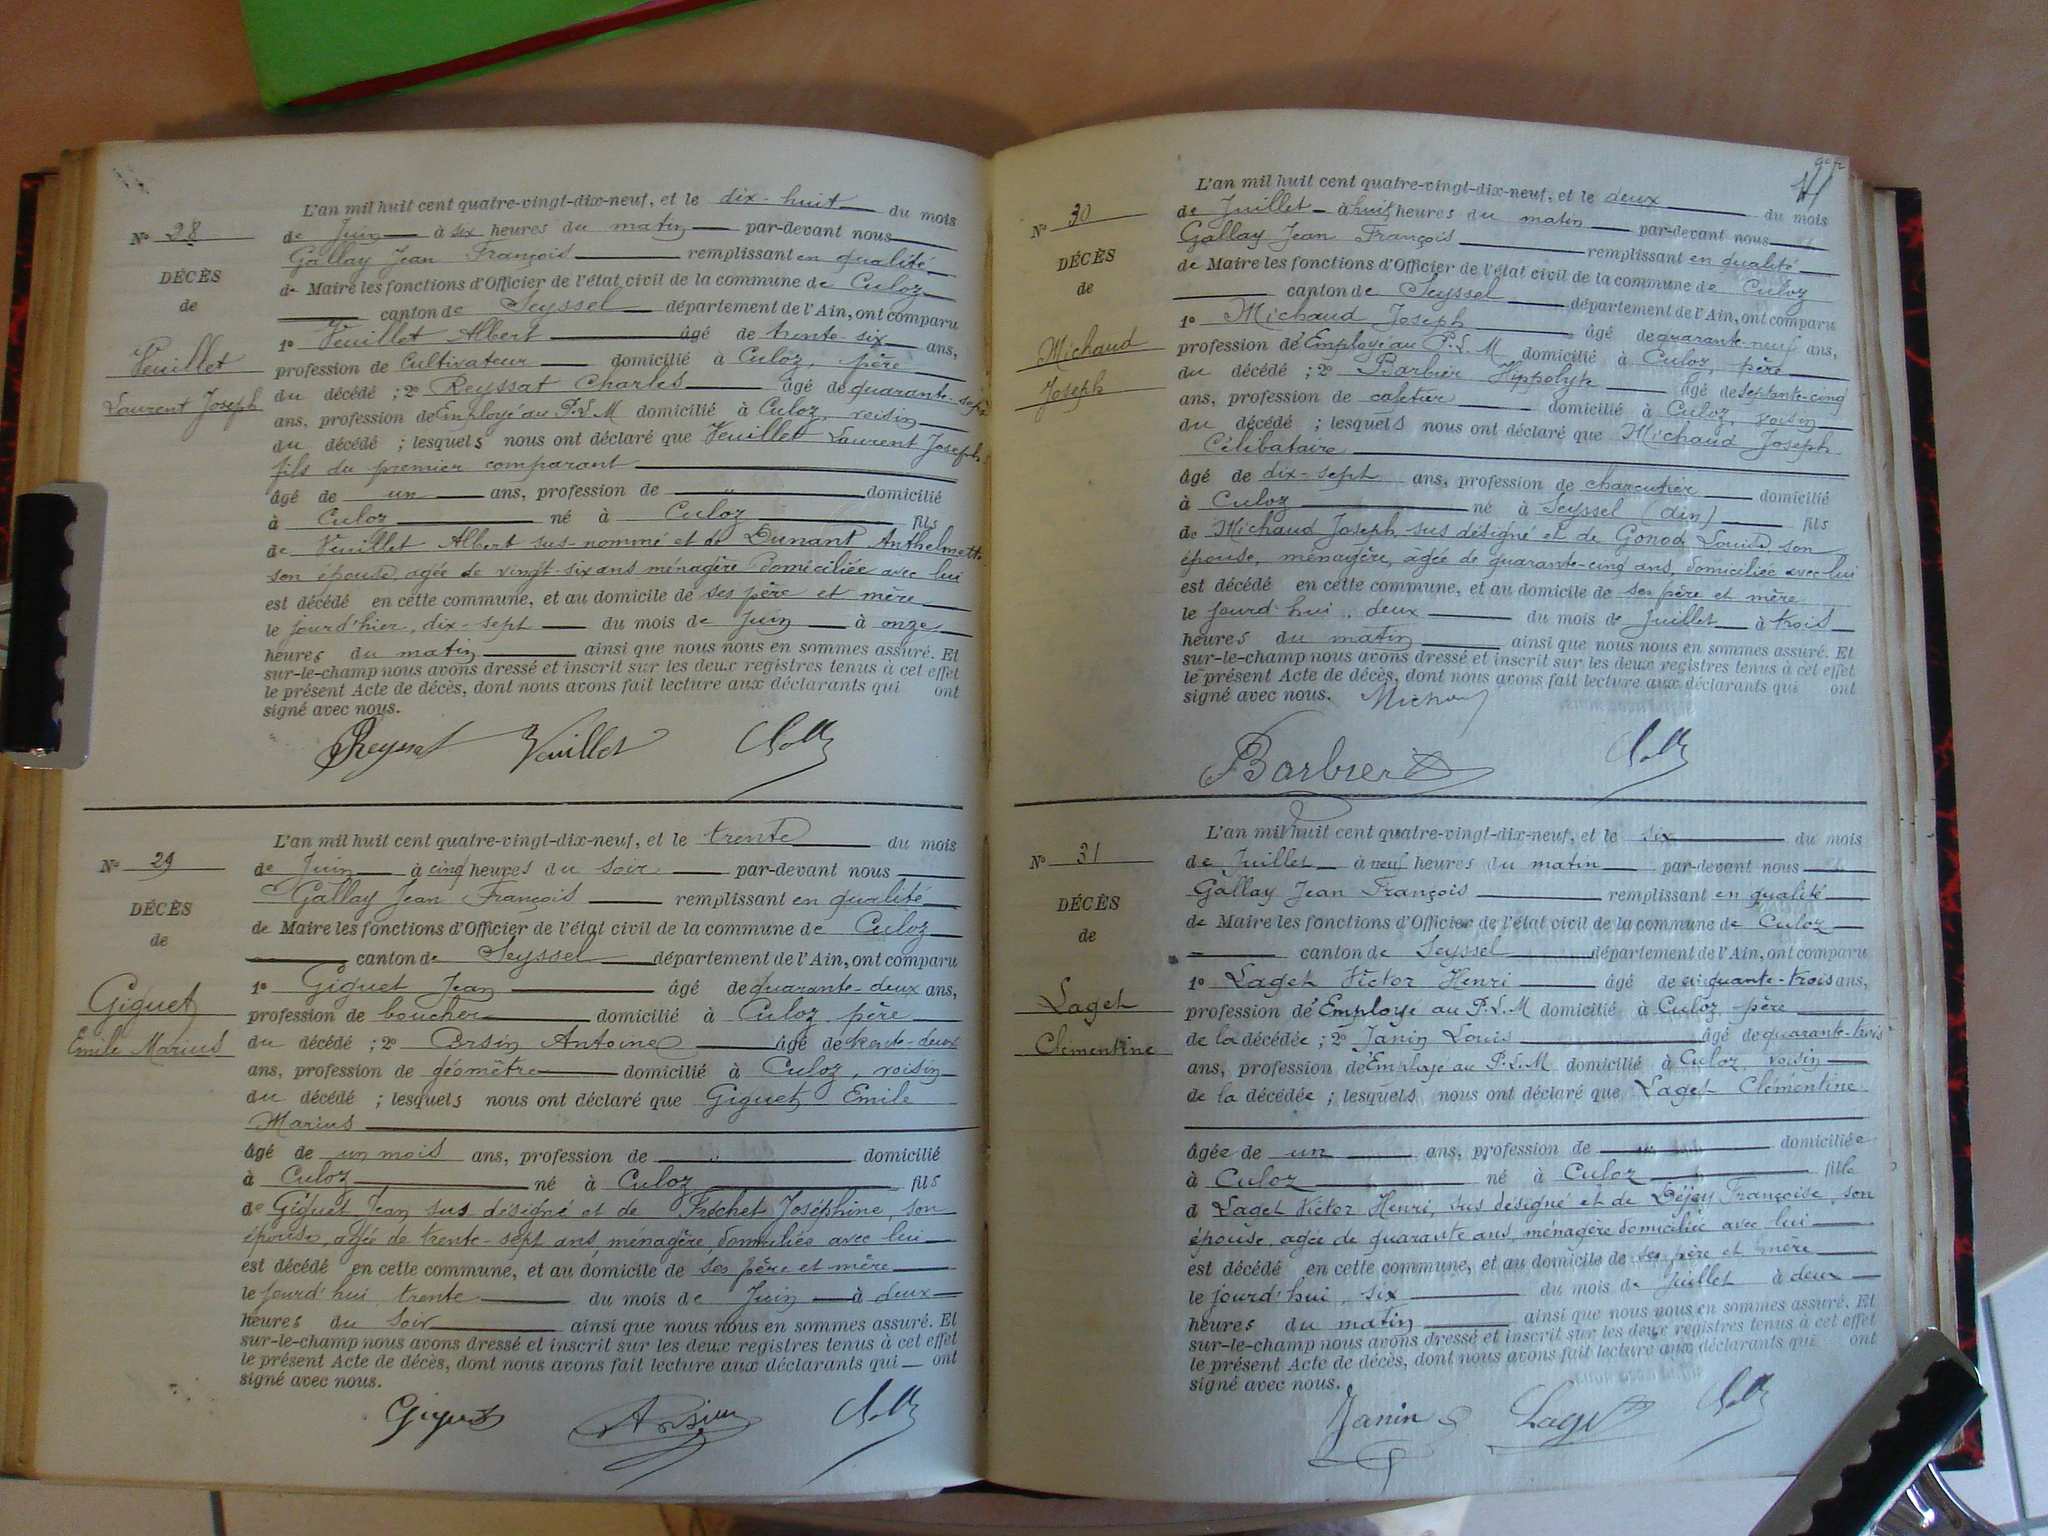 L'an mil huit cent quatre-vingt-dix-neuf, et le dix-huit du mois
N° 28
de Juin à six heures du matin par-devant nous
Gallay Jean François remplissant en qualité
DÉCÈS
de Maire les fonctions d'Officier de l'état civil de la commune de Culoz
de
canton de Seyssel département de l'Ain, ont comparu
1° Veuillet Albert âgé de trente-six ans,
Veuillet
profession de Cultivateur domicilié à Culoz, père
Laurent Joseph
du décédé ; 2° Reyssat Charles âgé de quarante-sept
ans, profession de Employé au P.L.M domicilié à Culoz, voisin
du décédé ; lesquels nous ont déclaré que Veuillet Laurent Joseph
fils du premier comparant
âgé de un ans, profession de domicilié
à Culoz né à Culoz fils
de Veuillet Albert sus-nommé et de Dunant Anthelmette
son épouse, agée de vingt-six ans ménagère domiciliée avec lui
est décédé en cette commune, et au domicile de ses père et mère
le jourd'hier, dix-sept du mois de Juin à onze
heures du matin ainsi que nous nous en sommes assuré. Et
sur-le-champ nous avons dressé et inscrit sur les deux registres tenus à cet effet
le présent Acte de décès, dont nous avons fait lecture aux déclarants qui ont
signé avec nous.
Reyssat Veuillet
L'an mil huit cent quatre-vingt-dix-neuf, et le trente du mois
N° 29
de Juin à cinq heures du soir par-devant nous
Gallay Jean François remplissant en qualité
DÉCÈS
de Maire les fonctions d'Officier de l'état civil de la commune de Culoz
de
canton de Seyssel département de l'Ain, ont comparu
1° Giguet Jean âgé de quarante-deux ans,
Giguet
profession de boucher domicilié à Culoz, père
Emile Marius
du décédé ; 2° Arsin Antoine âgé de trente-deux
ans, profession de géomètre domicilié à Culoz, voisin
du décédé ; lesquels nous ont déclaré que Giguet Emile
Marius
âgé de un mois ans, profession de domicilié
à Culoz né à Culoz fils
de Giguet Jean sus désigné et de Fréchet Joséphine, son
épouse, agée de trente-sept ans, ménagère, domiciliée avec lui
est décédé en cette commune, et au domicile de ses père et mère
le jourd'hui trente du mois de Juin à deux
heures du soir ainsi que nous nous en sommes assuré. Et
sur-le-champ nous avons dressé et inscrit sur les deux registres tenus à cet effet
le présent Acte de décès, dont nous avons fait lecture aux déclarants qui ont
signé avec nous.
Giguet Arsin
L'an mil huit cent quatre-vingt-dix-neuf, et le deux du mois
N° 30
de Juillet à huit heures du matin par-devant nous
Gallay Jean François remplissant en qualité
DÉCÈS
de Maire les fonctions d'Officier de l'état civil de la commune de Culoz
de
canton de Seyssel département de l'Ain, ont comparu
1° Michaud Joseph âgé de quarante-neuf ans,
Michaud
profession d'Employé au P.L.M domicilié à Culoz, père
Joseph
du décédé ; 2° Barbier Hippolyte âgé de septante-cinq
ans, profession de cafetier domicilié à Culoz, voisin
du décédé ; lesquels nous ont déclaré que Michaud Joseph
Célibataire
âgé de dix-sept ans, profession de charcutier domicilié
à Culoz né à Seyssel (Ain) fils
de Michaud Joseph sus désigné et de Gonod Louise son
épouse, ménagère, agée de quarante-cinq ans, domiciliée avec lui
est décédé en cette commune, et au domicile de ses père et mère
le jourd'hui, deux du mois de Juillet à trois
heures du matin ainsi que nous nous en sommes assuré. Et
sur-le-champ nous avons dressé et inscrit sur les deux registres tenus à cet effet
le présent Acte de décès, dont nous avons fait lecture aux déclarants qui ont
signé avec nous.
Barbier
L'an mil huit cent quatre-vingt-dix-neuf, et le six du mois
N° 31
de Juillet à neuf heures du matin par-devant nous
Gallay Jean François remplissant en qualité
DÉCÈS
de Maire les fonctions d'Officier de l'état civil de la commune de Culoz
de
canton de Seyssel département de l'Ain, ont comparu
1° Laget Victor Henri âgé de cinquante-trois ans,
Laget
profession d'Employé au P.L.M domicilié à Culoz, père
Clémentine
de la décédée ; 2° Janin Louis âgé de quarante-trois
ans, profession d'Employé au P.L.M domicilié à Culoz, voisin
de la décédée ; lesquels nous ont déclaré que Laget Clémentine
âgée de un ans, profession de domiciliée
à Culoz né à Culoz fille
d Laget Victor Henri, sus désigné et de Déjey Françoise, son
épouse, agée de quarante ans, ménagère domiciliée avec lui
est décédé en cette commune, et au domicile de ses père et mère
le jourd'hui, six du mois de Juillet à deux
heures du matin ainsi que nous nous en sommes assuré. Et
sur-le-champ nous avons dressé et inscrit sur les deux registres tenus à cet effet
le présent Acte de décès, dont nous avons fait lecture aux déclarants qui ont
signé avec nous.
Janin Laget